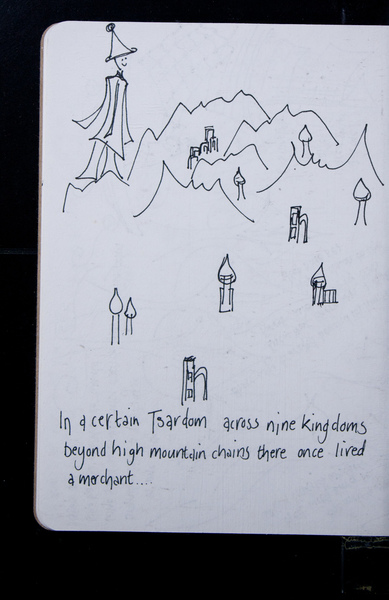 In a certain Tsardom across nine kingdoms
beyond high mountain chains there once lived
a merchant....